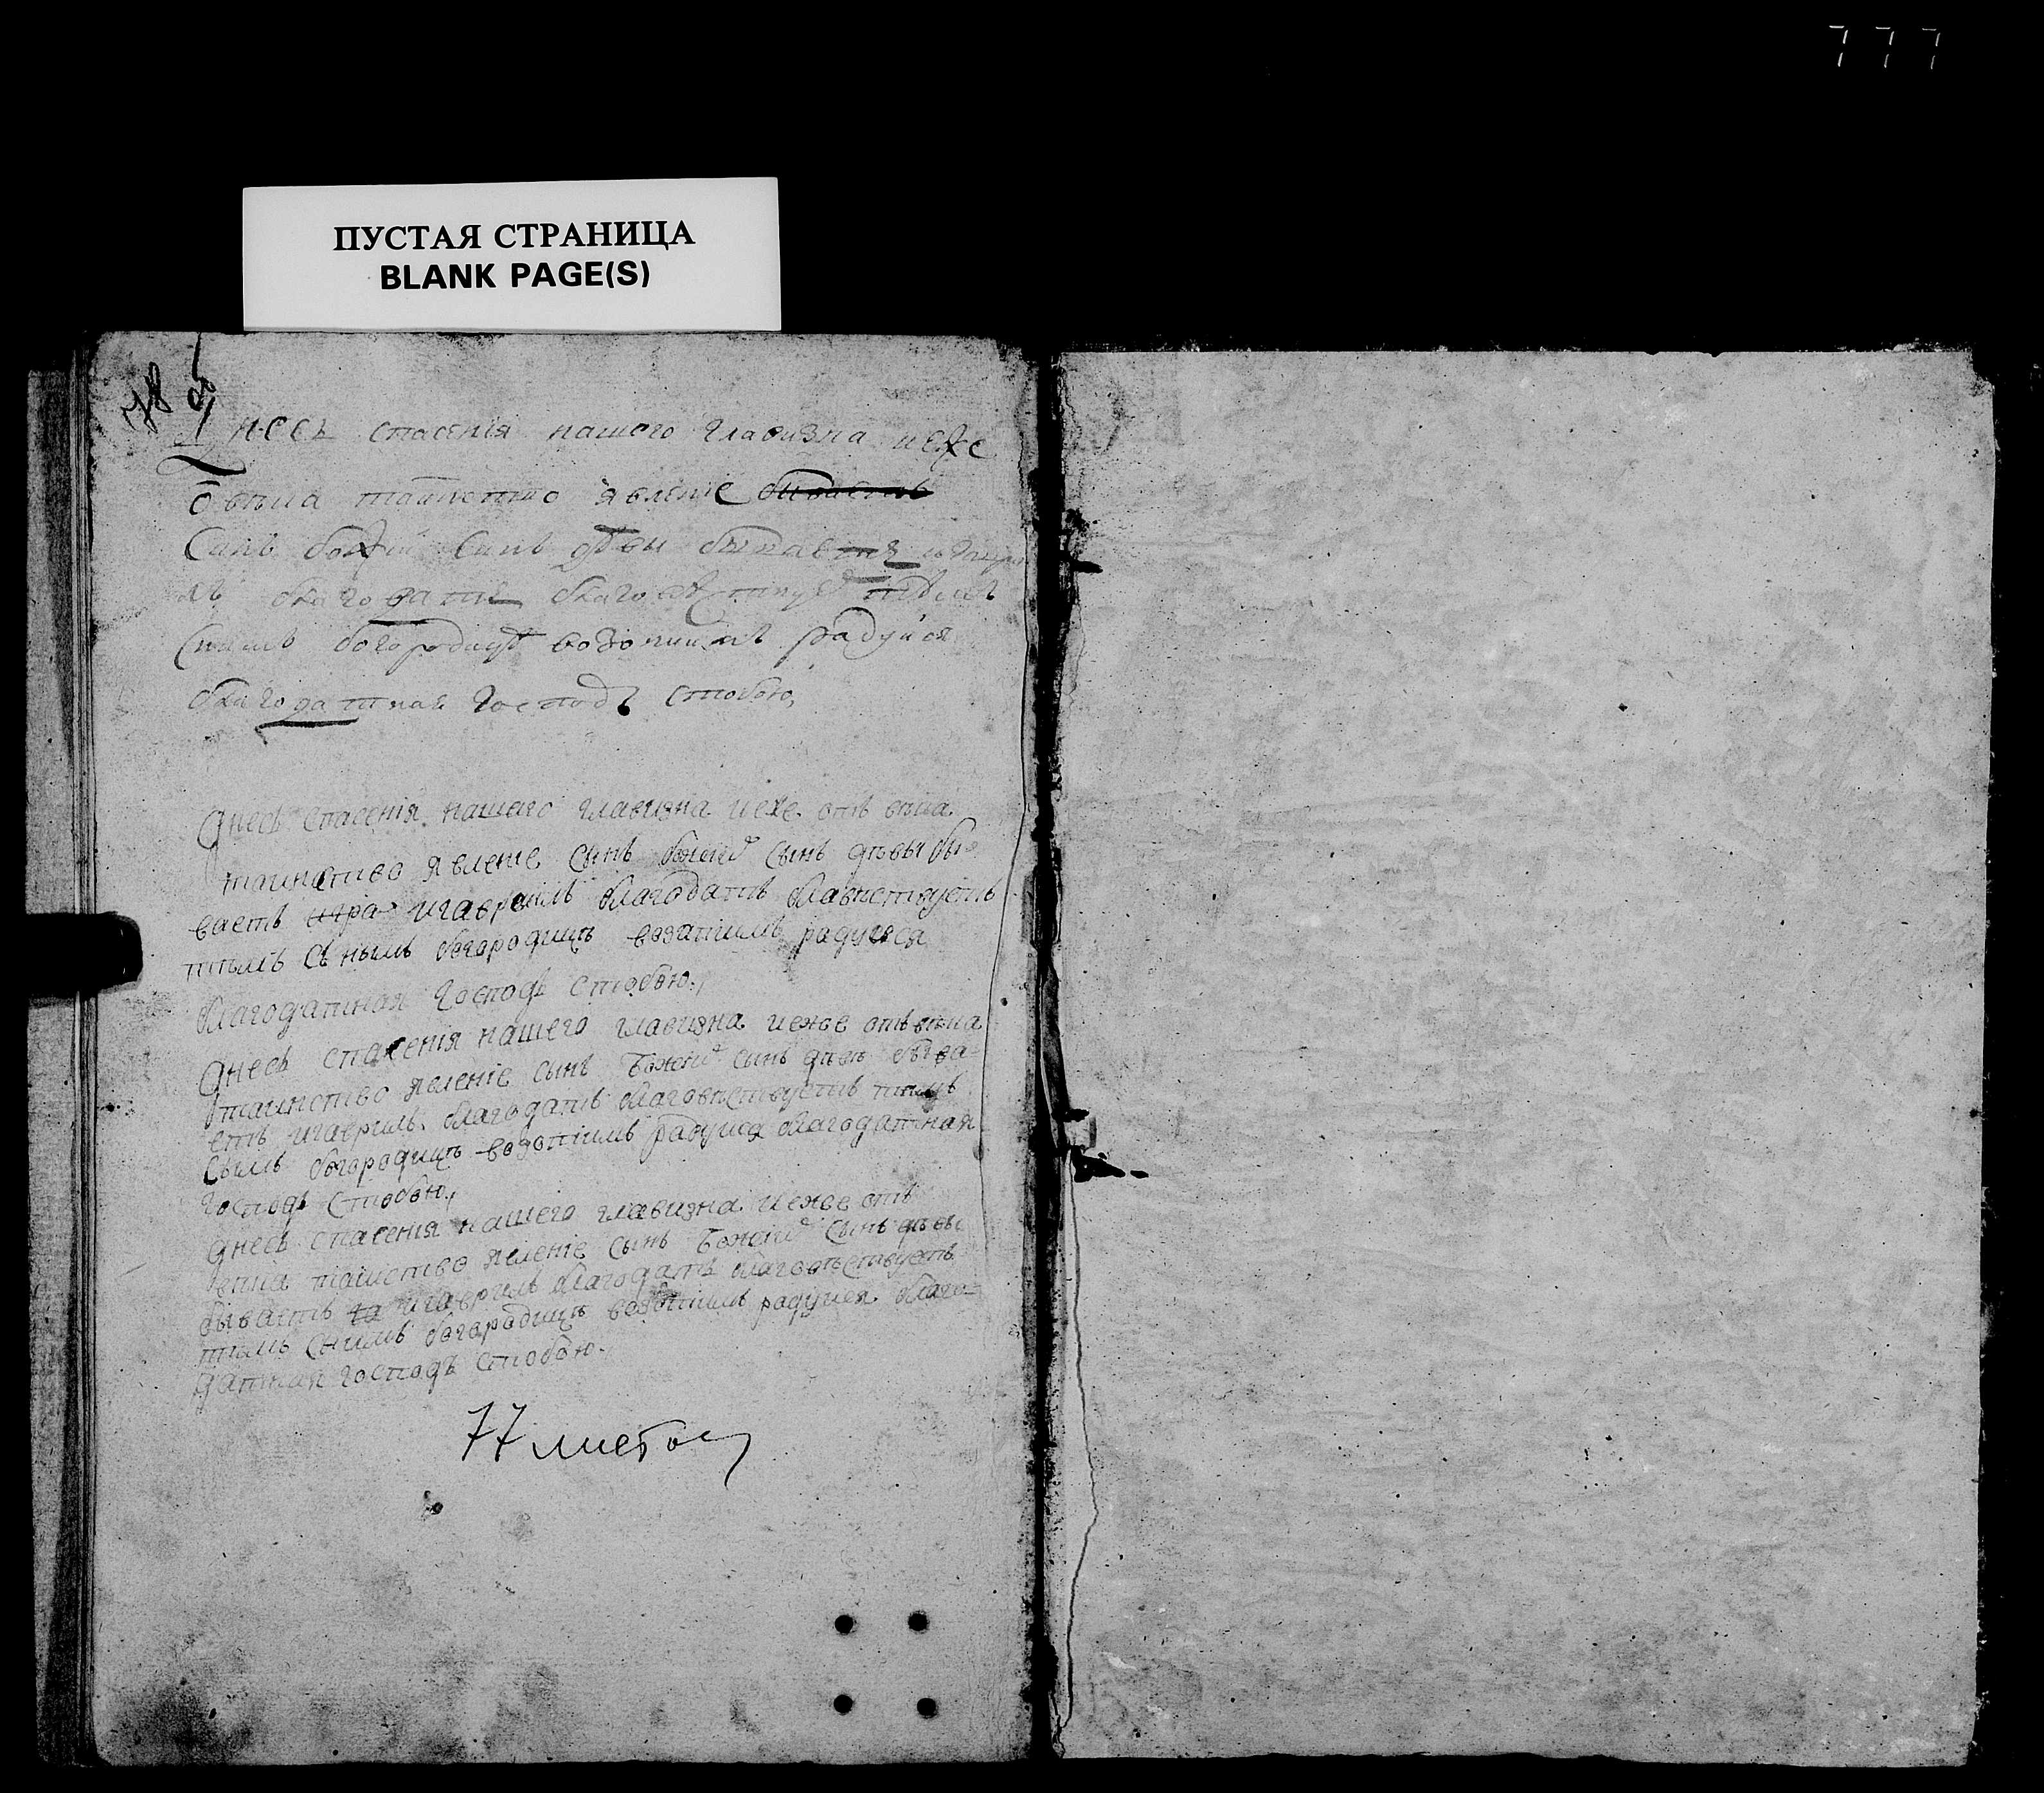 777
ПУСТАЯ СТРАНИЦА
BLANK PAGE(S)
78 об
Днесь спасенія нашего главизна иеже
ѿ вѣка таинство явленіе бываетъ
Синъ божій Синъ дѣвы бывает
благодать благовѣствуетъ тѣмъ
Снимъ богородицѣ возопиимъ радуйся
благодатная Господь стобою,
Днесь спасенія нашего главизна иеже отъ вѣка
таинство явленіе сынъ божей сынъ дѣвы бы-
ваетъ игра игаврыилъ благодать блавѣствуетъ
тѣмъ Сънымъ богородицѣ возапіимъ радуися
благодатная Господь стобою,
Днесь спасенія нашего главизна иеже отъ вѣка
таинство явленіе сынъ Божей сынъ дѣвы быва-
етъ игаврилъ благодать благовѣствуетъ тѣмъ
Сымъ богородицѣ возопіимъ радуися благодатная
Господь Стобою,
Днесь спасенія нашего главизна иеже отъ
вѣка таиство явленіе сынъ Божей сынъ дѣвы
бываетъ га игаврилъ благодать благовѣствуетъ
тѣмъ Снимъ богородицѣ возопіимъ радуися благо-
датная господь стобою.
77 листов